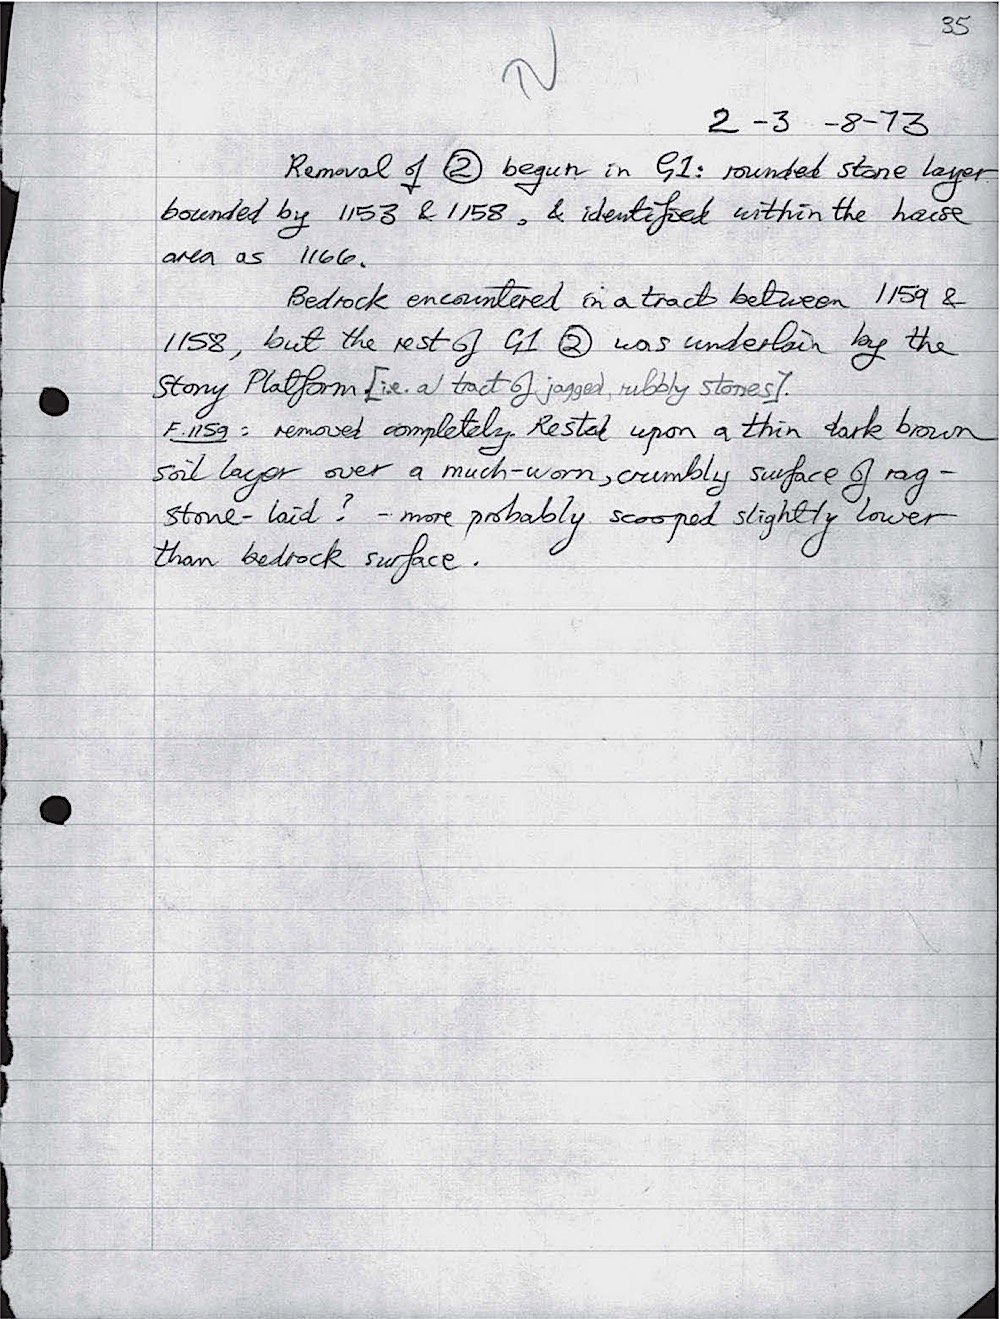 35
2 -3 -8-73
Removal of ② begun in G1: rounded stone layer
bounded by 1153 & 1158, & identified within the house
area as 1166.
Bedrock encountered in a tract between 1159 &
1158, but the rest of G1 ② was underlain by the
Stony Platform [i.e. a tract of jagged, rubbly stones].
F.1159: removed completely. Rested upon a thin dark brown
soil layer over a much-worn, crumbly surface of rag-
stone- laid? - more probably scooped slightly lower
than bedrock surface.